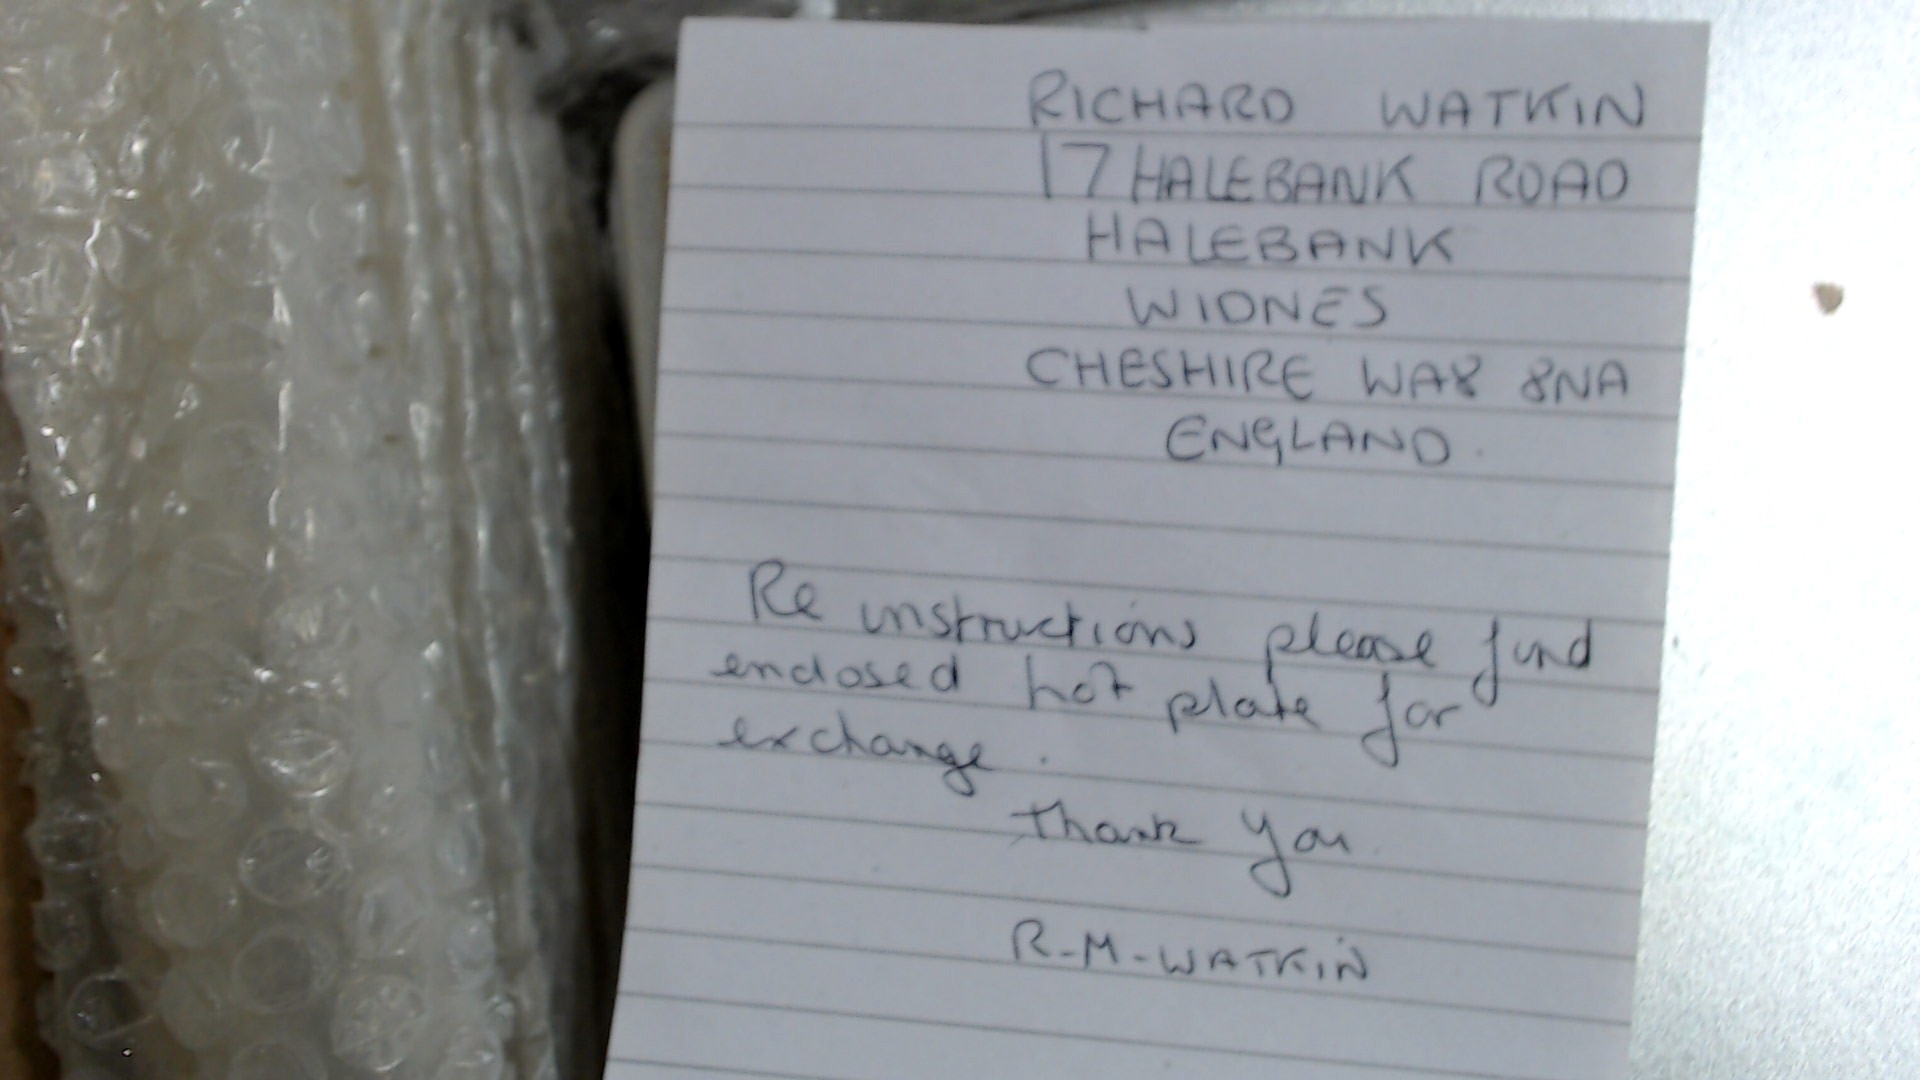 RICHARD WATKIN
17 HALEBANK ROAD
HALEBANK
WIDNES
CHESHIRE WA8 8NA
ENGLAND.
Re instructions please find
enclosed hot plate for
exchange.
Thank you
R-M-WATKIN